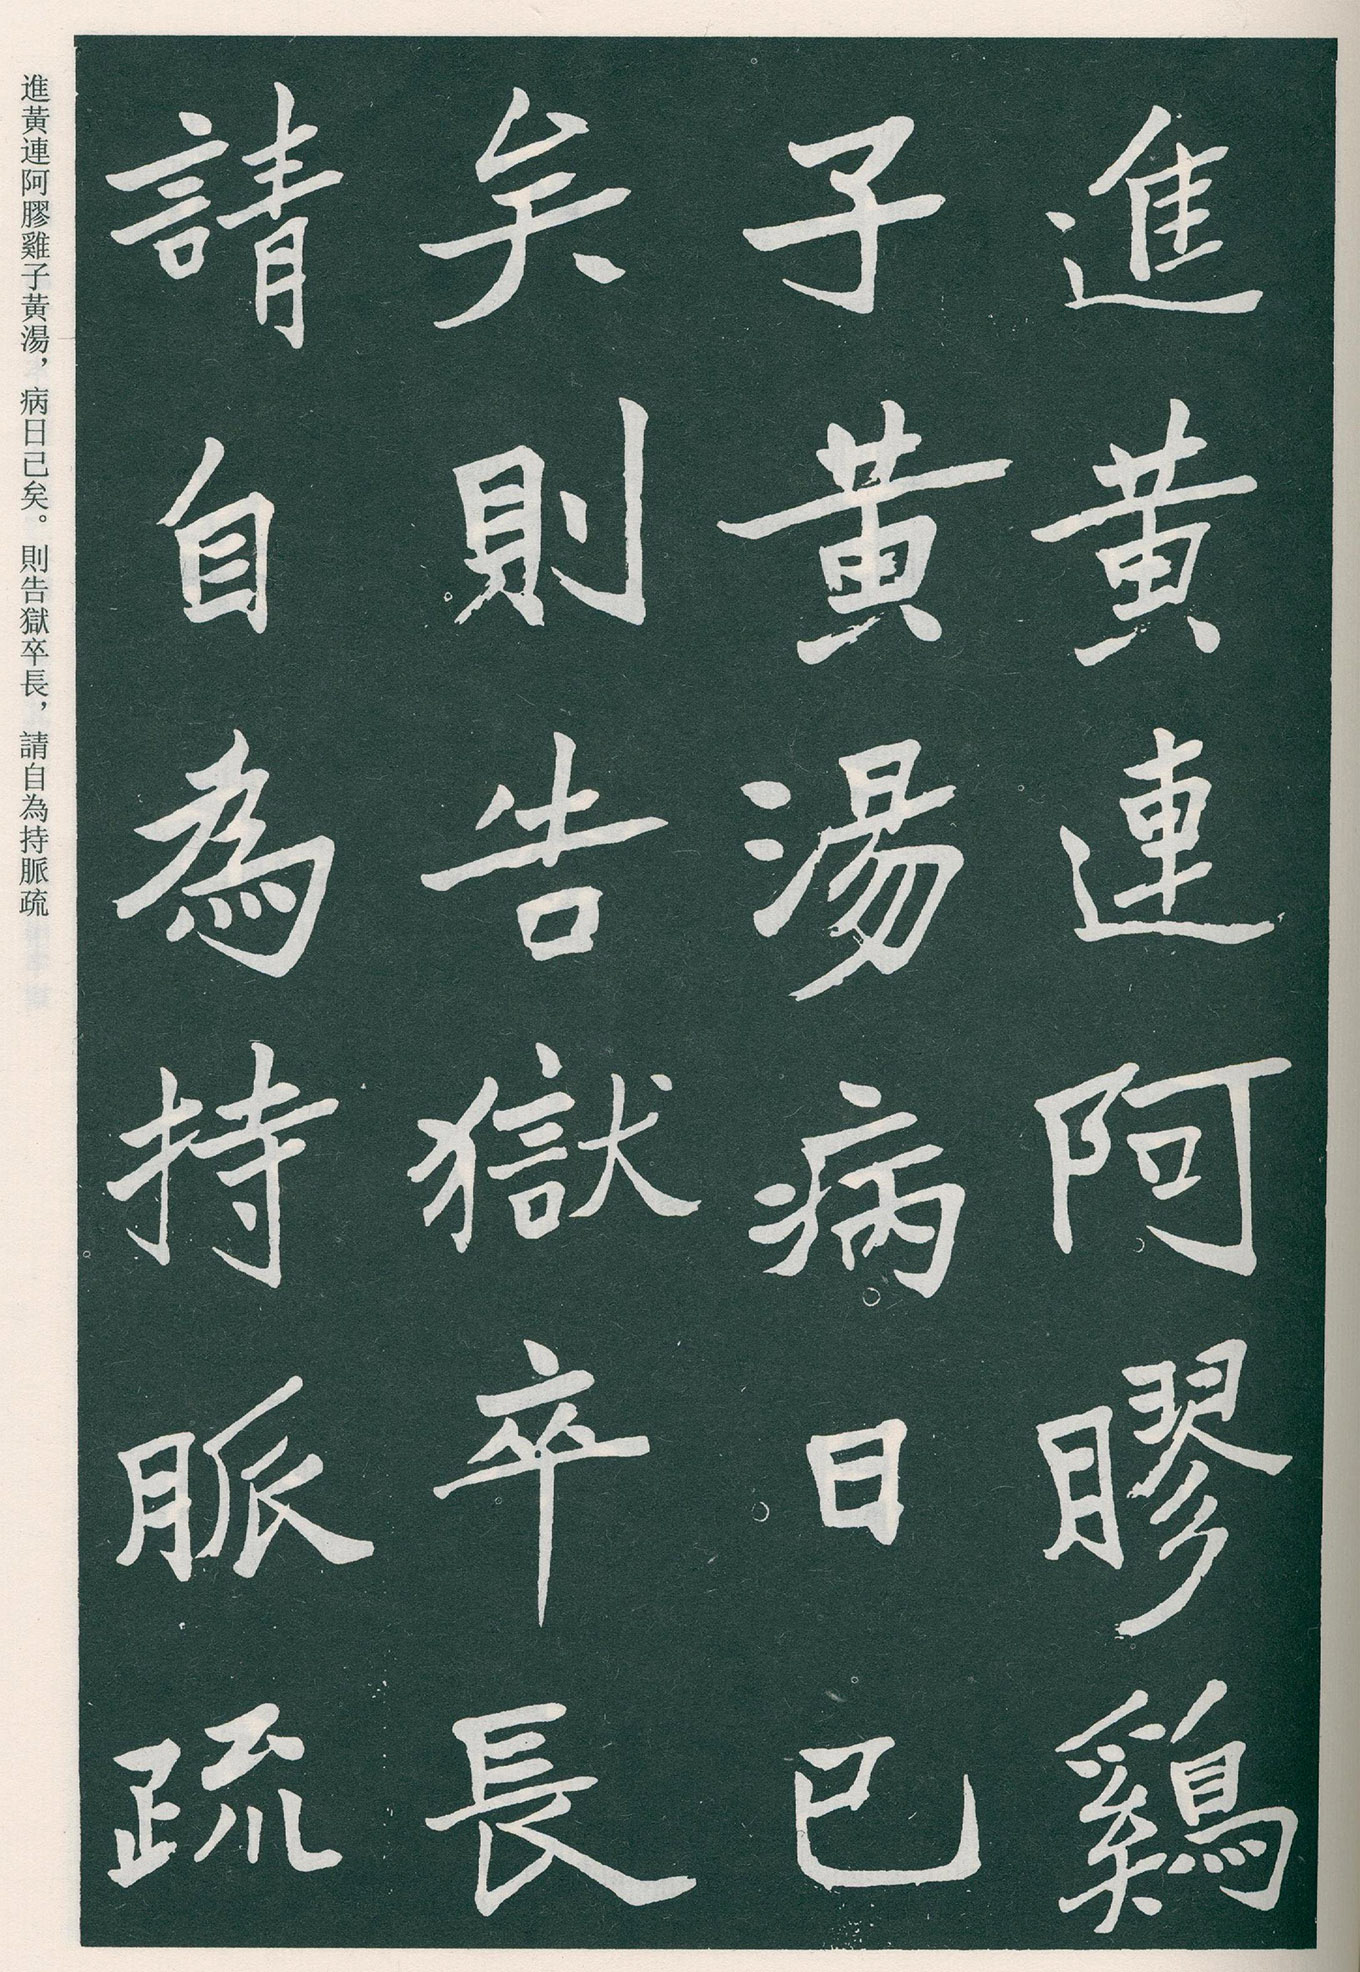 進黃連阿膠鷄
子黃湯病日已
矣則告獄卒長
請自為持脈疏
進黃連阿膠雞子黃湯，病日已矣。則告獄卒長，請自為持脈疏